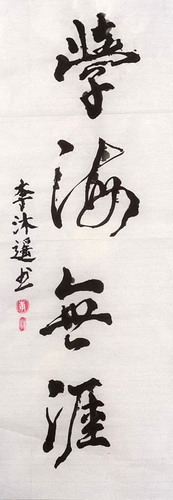 學海無涯
李沐遥书